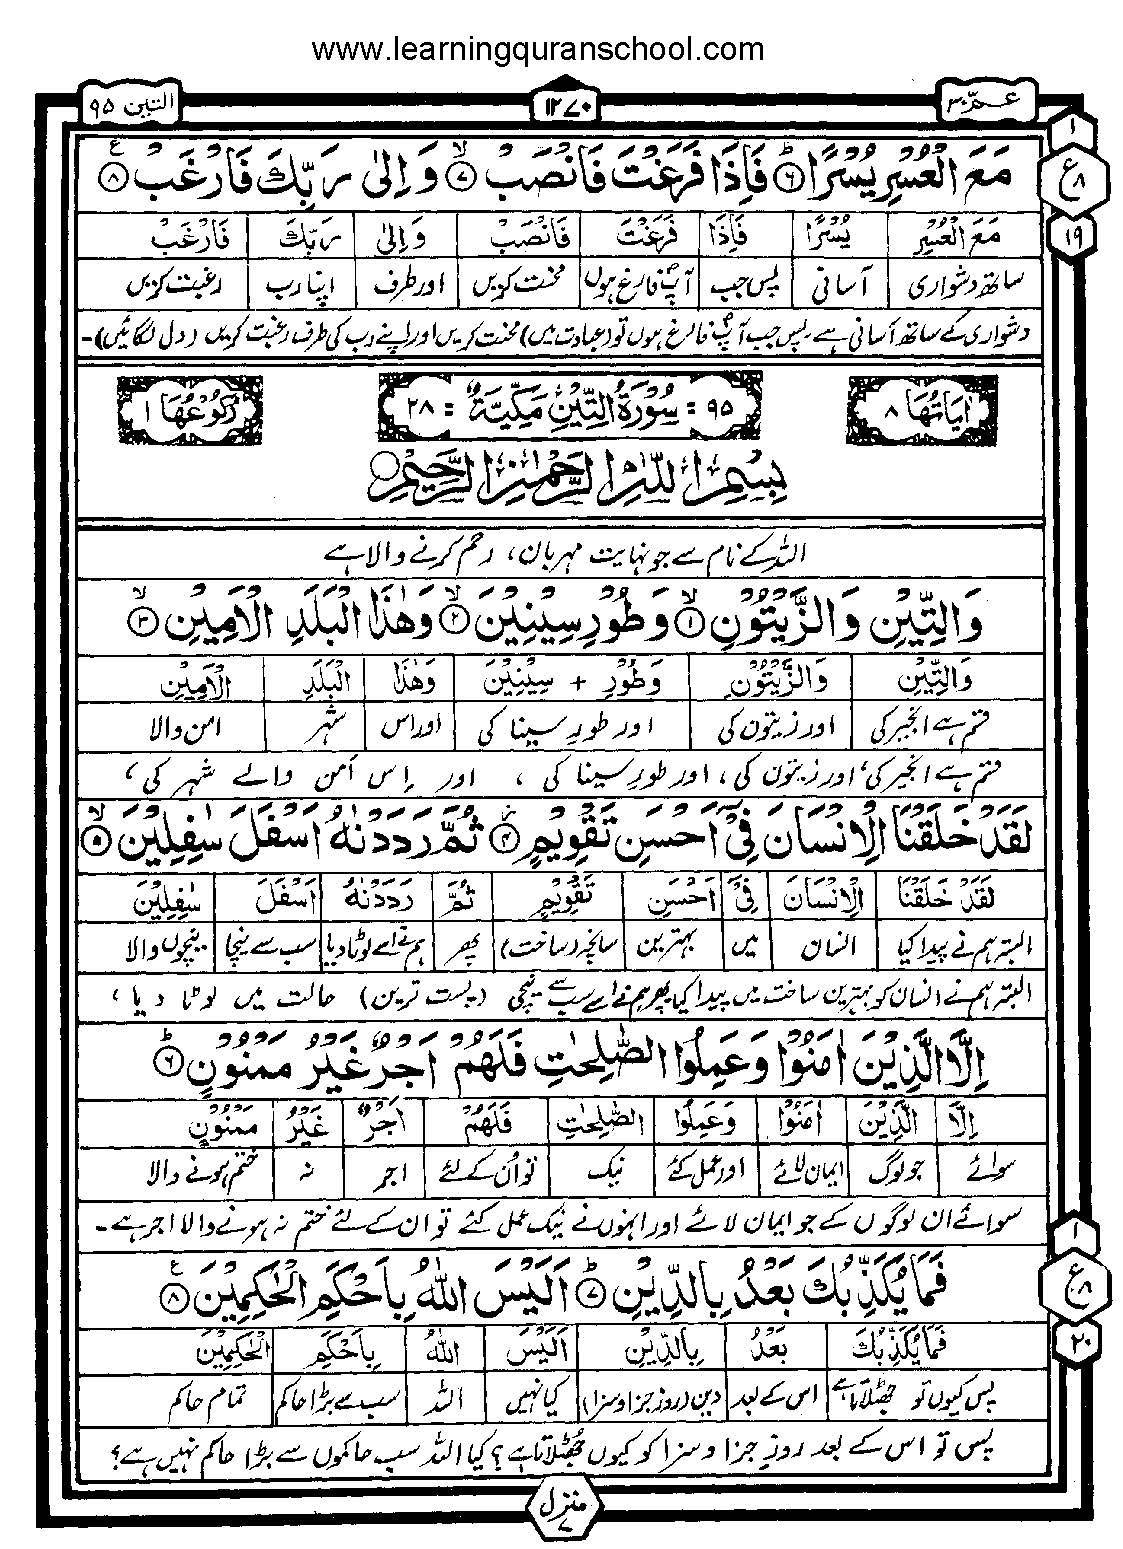 www.learningquranschool.com
التین ۹۵
۱۲۷۰
عـمّ ۳۰
۱
ع
۸
۱۹
مَعَ الْعُسْرِ يُسْرًا ؕ۶ فَاِذَا فَرَغْتَ فَانْصَبْ ۙ۷ وَ اِلٰى رَبِّكَ فَارْغَبْ ۸ع
مَعَ الْعُسْرِ يُسْرًا فَاِذَا فَرَغْتَ فَانْصَبْ وَ اِلٰى رَبِّكَ فَارْغَبْ
ساتھ دشواری آسانی پس جب آپؐ فارغ ہوں محنت کریں اور طرف اپنا رب رغبت کریں
دشواری کے ساتھ آسانی ہے پس جب آپؐ فارغ ہوں تو (عبادت میں) محنت کریں اور اپنے رب کی طرف رغبت کریں (دل لگائیں)۔
اٰيَاتُهَا ۸
۹۵ = سُوْرَةُ التِّيْنِ مَكِّيَّةٌ = ۲۸
رُكُوْعُهَا ۱
بِسْمِ اللّٰهِ الرَّحْمٰنِ الرَّحِيْمِ
اللہ کے نام سے جو نہایت مہربان، رحم کرنے والا ہے
وَالتِّيْنِ وَالزَّيْتُوْنِ ۙ۱ وَطُوْرِ سِيْنِيْنَ ۙ۲ وَهٰذَا الْبَلَدِ الْاَمِيْنِ ۙ۳
وَالتِّيْنِ وَالزَّيْتُوْنِ وَطُوْرِ + سِيْنِيْنَ وَهٰذَا الْبَلَدِ الْاَمِيْنِ
قسم ہے انجیر کی اور زیتون کی اور طورِ سینا کی اور اس شہر امن والا
قسم ہے انجیر کی، اور زیتون کی، اور طورِ سینا کی ، اور اِس اَمن والے شہر کی،
لَقَدْ خَلَقْنَا الْاِنْسَانَ فِىْۤ اَحْسَنِ تَقْوِيْمٍ ۴ ثُمَّ رَدَدْنٰهُ اَسْفَلَ سٰفِلِيْنَ ۙ۵
لَقَدْ خَلَقْنَا الْاِنْسَانَ فِىْۤ اَحْسَنِ تَقْوِيْمٍ ثُمَّ رَدَدْنٰهُ اَسْفَلَ سٰفِلِيْنَ
البتہ ہم نے پیدا کیا انسان میں بہترین سانچہ (ساخت) پھر ہم نے اسے لوٹا دیا سب سے نیچا نیچوں والا
البتہ ہم نے انسان کو بہترین ساخت میں پیدا کیا پھر ہم نے اسے سب سے نیچی (پست ترین) حالت میں لوٹا دیا،
اِلَّا الَّذِيْنَ اٰمَنُوْا وَعَمِلُوا الصّٰلِحٰتِ فَلَهُمْ اَجْرٌ غَيْرُ مَمْنُوْنٍ ؕ۶
اِلَّا الَّذِيْنَ اٰمَنُوْا وَعَمِلُوا الصّٰلِحٰتِ فَلَهُمْ اَجْرٌ غَيْرُ مَمْنُوْنٍ
سوائے جو لوگ ایمان لائے اور عمل کئے نیک تو اُن کے لئے اجر نہ ختم ہونے والا
سوائے ان لوگوں کے جو ایمان لائے اور انہوں نے نیک عمل کئے تو ان کے لئے ختم نہ ہونے والا اجر ہے۔
فَمَا يُكَذِّبُكَ بَعْدُ بِالدِّيْنِ ؕ۷ اَلَيْسَ اللّٰهُ بِاَحْكَمِ الْحٰكِمِيْنَ ۸ع
۱
ع
۸
۲۰
فَمَا يُكَذِّبُكَ بَعْدُ بِالدِّيْنِ اَلَيْسَ اللّٰهُ بِاَحْكَمِ الْحٰكِمِيْنَ
پس کیوں تو جھٹلاتا ہے اس کے بعد دین (روزِ جزا و سزا) کیا نہیں اللہ سب سے بڑا حاکم تمام حاکم
پس تو اس کے بعد روزِ جزا و سزا کو کیوں جھٹلاتا ہے؟ کیا اللہ سب حاکموں سے بڑا حاکم نہیں ہے؟
منزل
۷